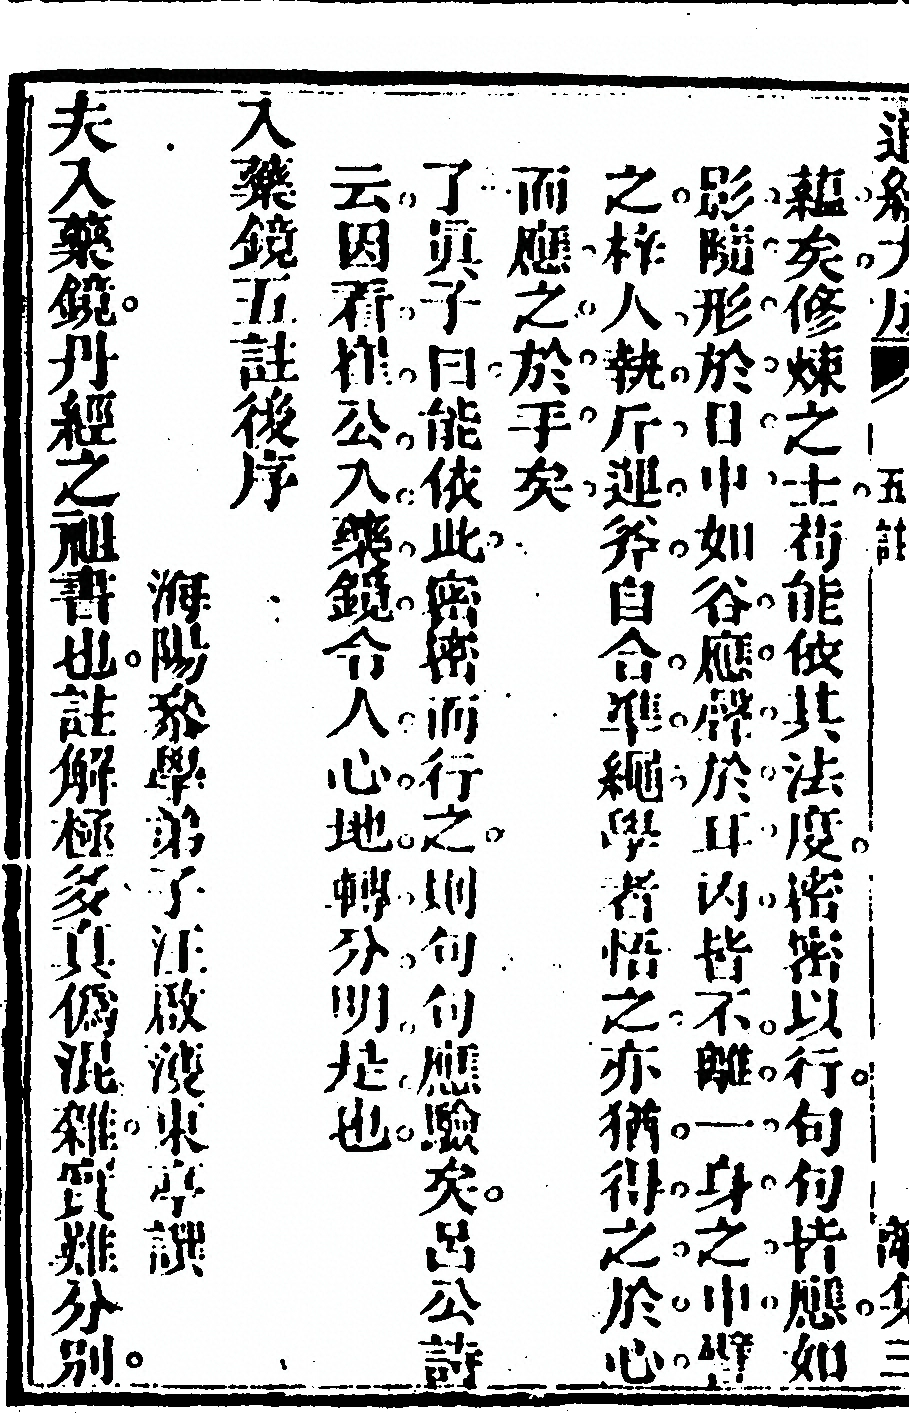 蘊矣修煉之士茍能依其法度密密以行句句皆應如
影隨形於日中如谷應聲於耳內皆不離一身之中譬
之梓人執斤運斧自合準繩學者悟之亦猶得之於心
而應之於手矣
了眞子曰能依此密密而行之則句句應驗矣呂公詩
云因看崔公入藥鏡令人心地轉分明是也
入藥鏡五註後序
海陽參學弟子汪啟濩東亭譔
夫入藥鏡丹經之祖書也註解極多真偽混雜實難分別